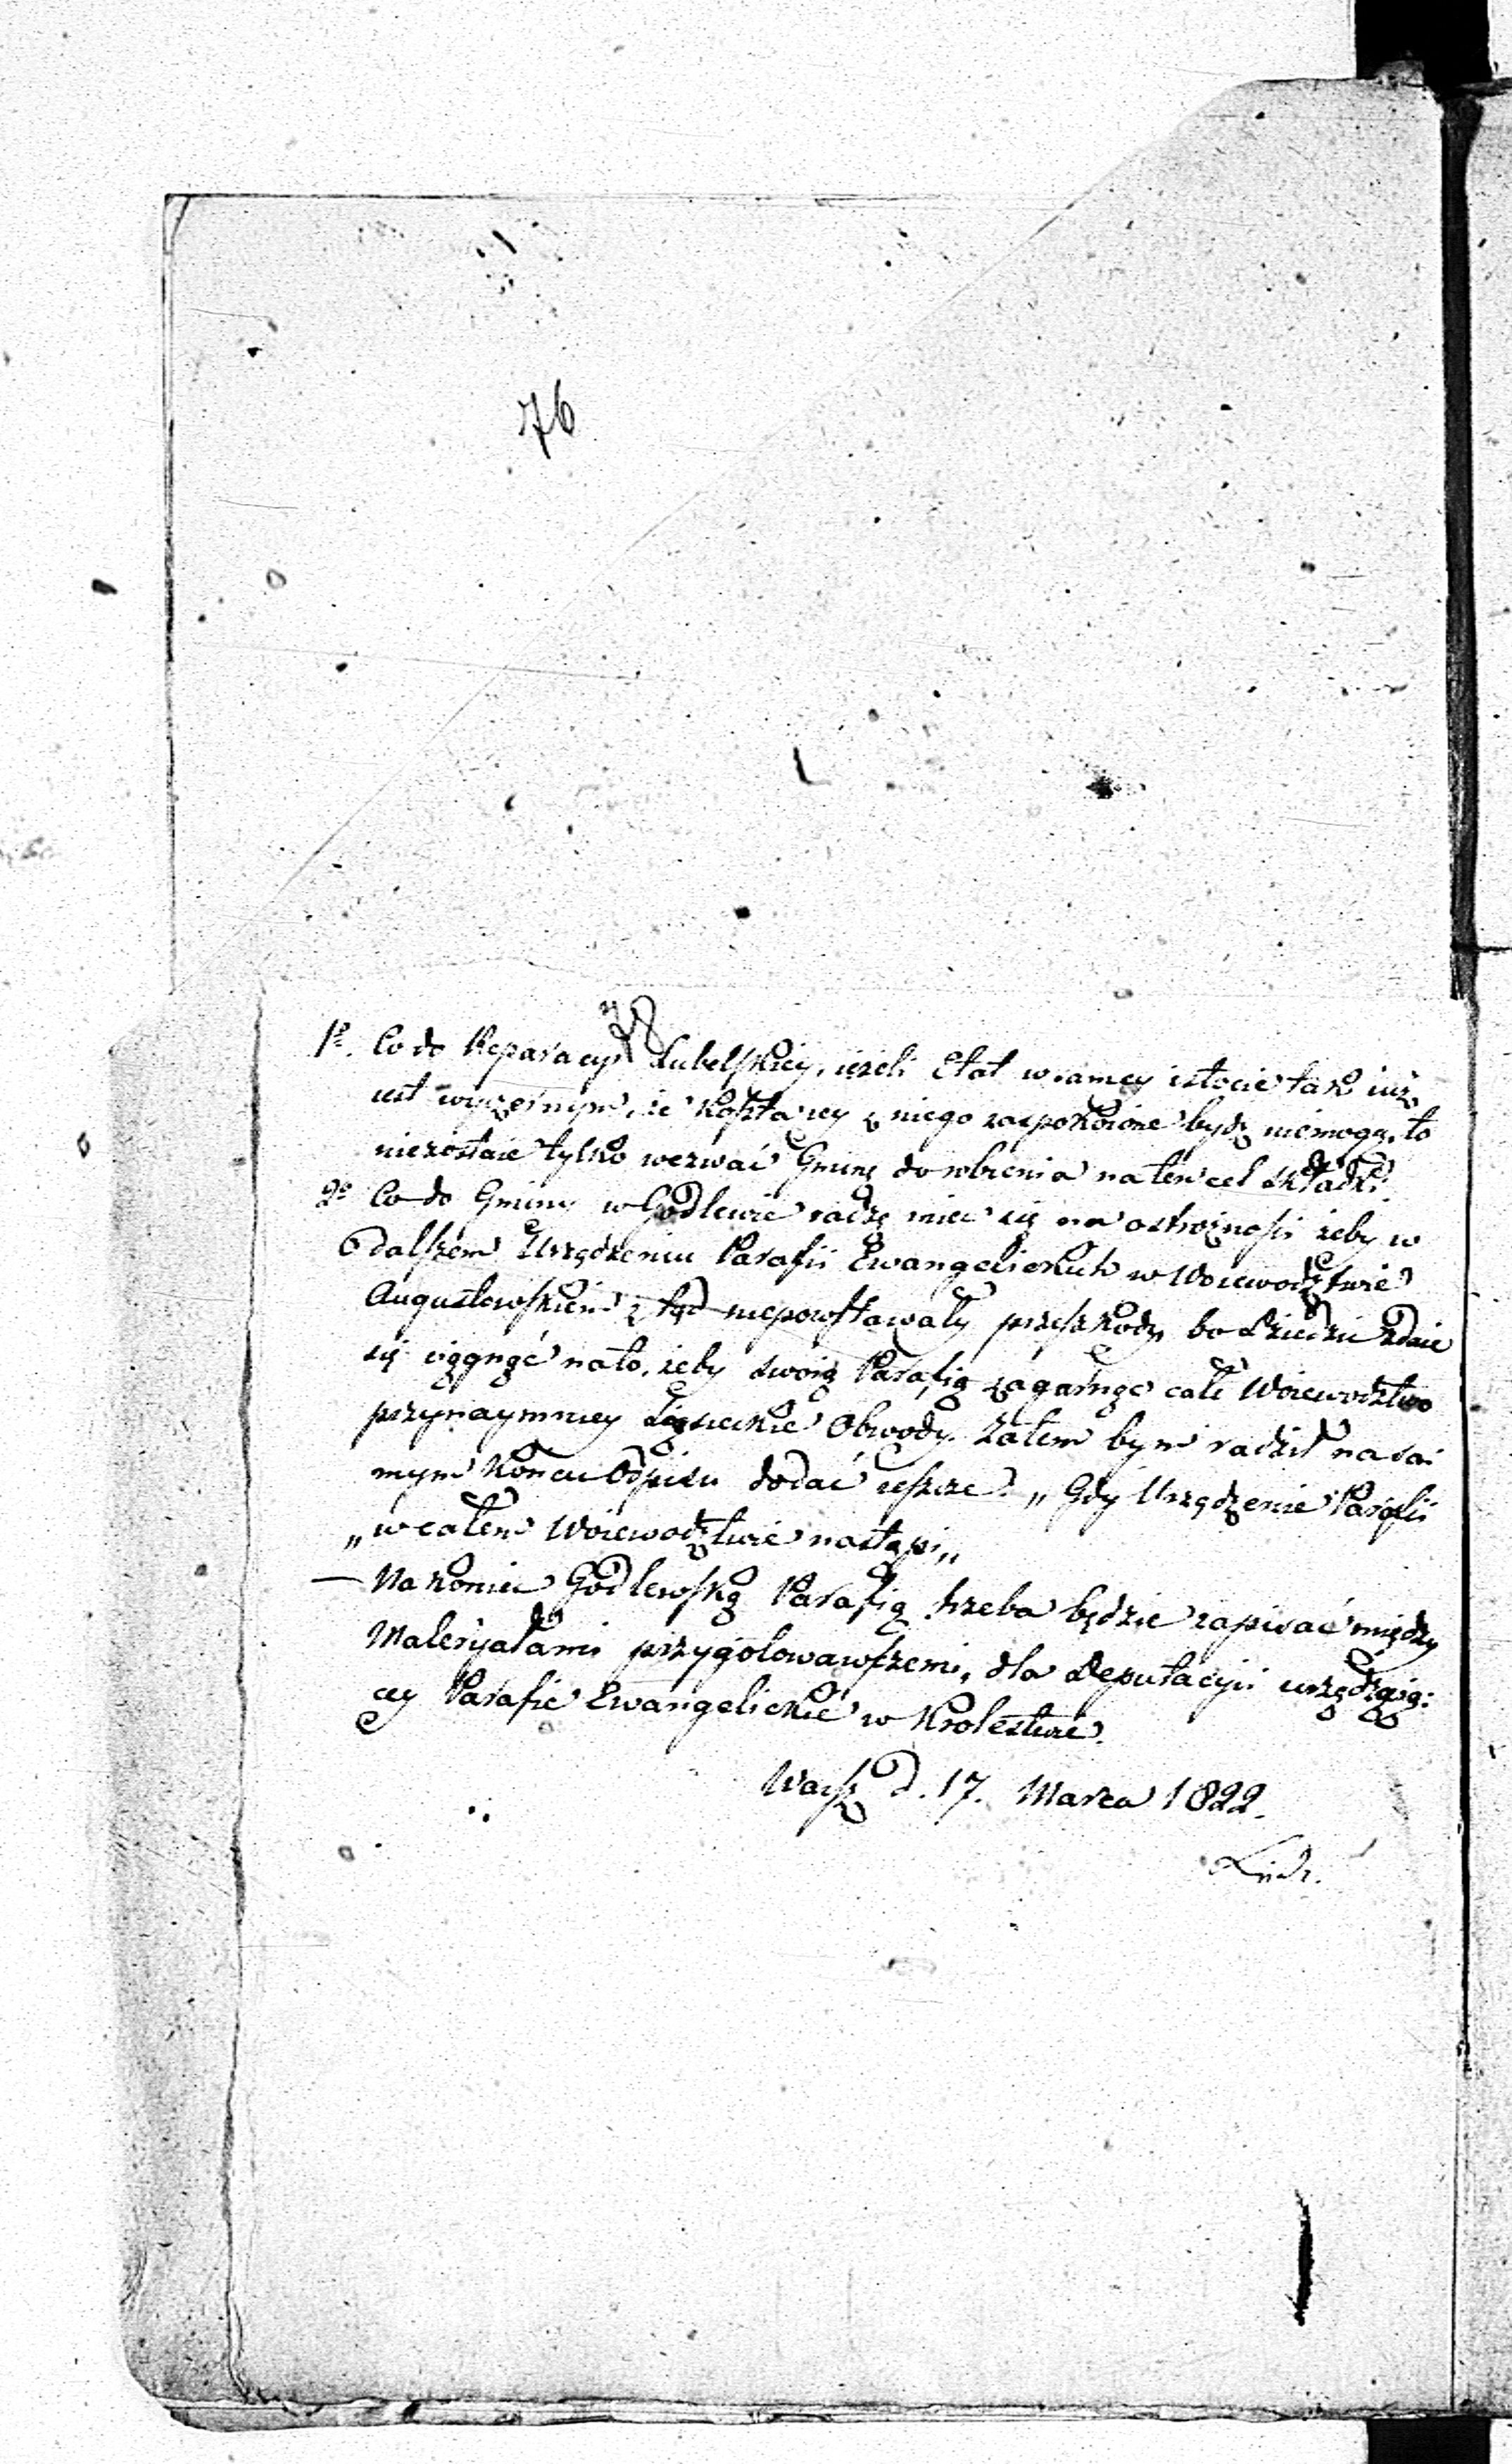 76
78
1º. Co do Reparacyi Lubelskiey, ieżeli Etat w samey istocie tak iuż
iest wyczerpnym, że koszta iey z niego zaspokoione bydź niemogą, to
niezostaie tylko wezwać Gminę do robienia na ten cel składki.
2º Co do Gminy w Godlewie radzę mieć się na ostrożności żeby w
dalszem Urządzeniu Parafii Ewangelickich w Woiewodztwie
Augustowskiem z tąd niepowstawały przeszkody, bo Dziedzic zdaie
się ciągnąć na to, żeby swoią Parafią zagarnąć całe Woiewodztwo
przynaymniey Obwody. Zatem bym radził na sa:
mym końcu Odpisu dodać ieszcze. „Gdy Urządzenie Parafii
„w całem Woiewodztwie nastąpi„
— Nakoniec Godlewską Parafią trzeba będzie zapisać między
Materyałami przygotowawszemi, dla Deputacyi urządzaią:
cey Parafie Ewangelickie w Krolestwie.
Warsz d. 17. Marca 1822.